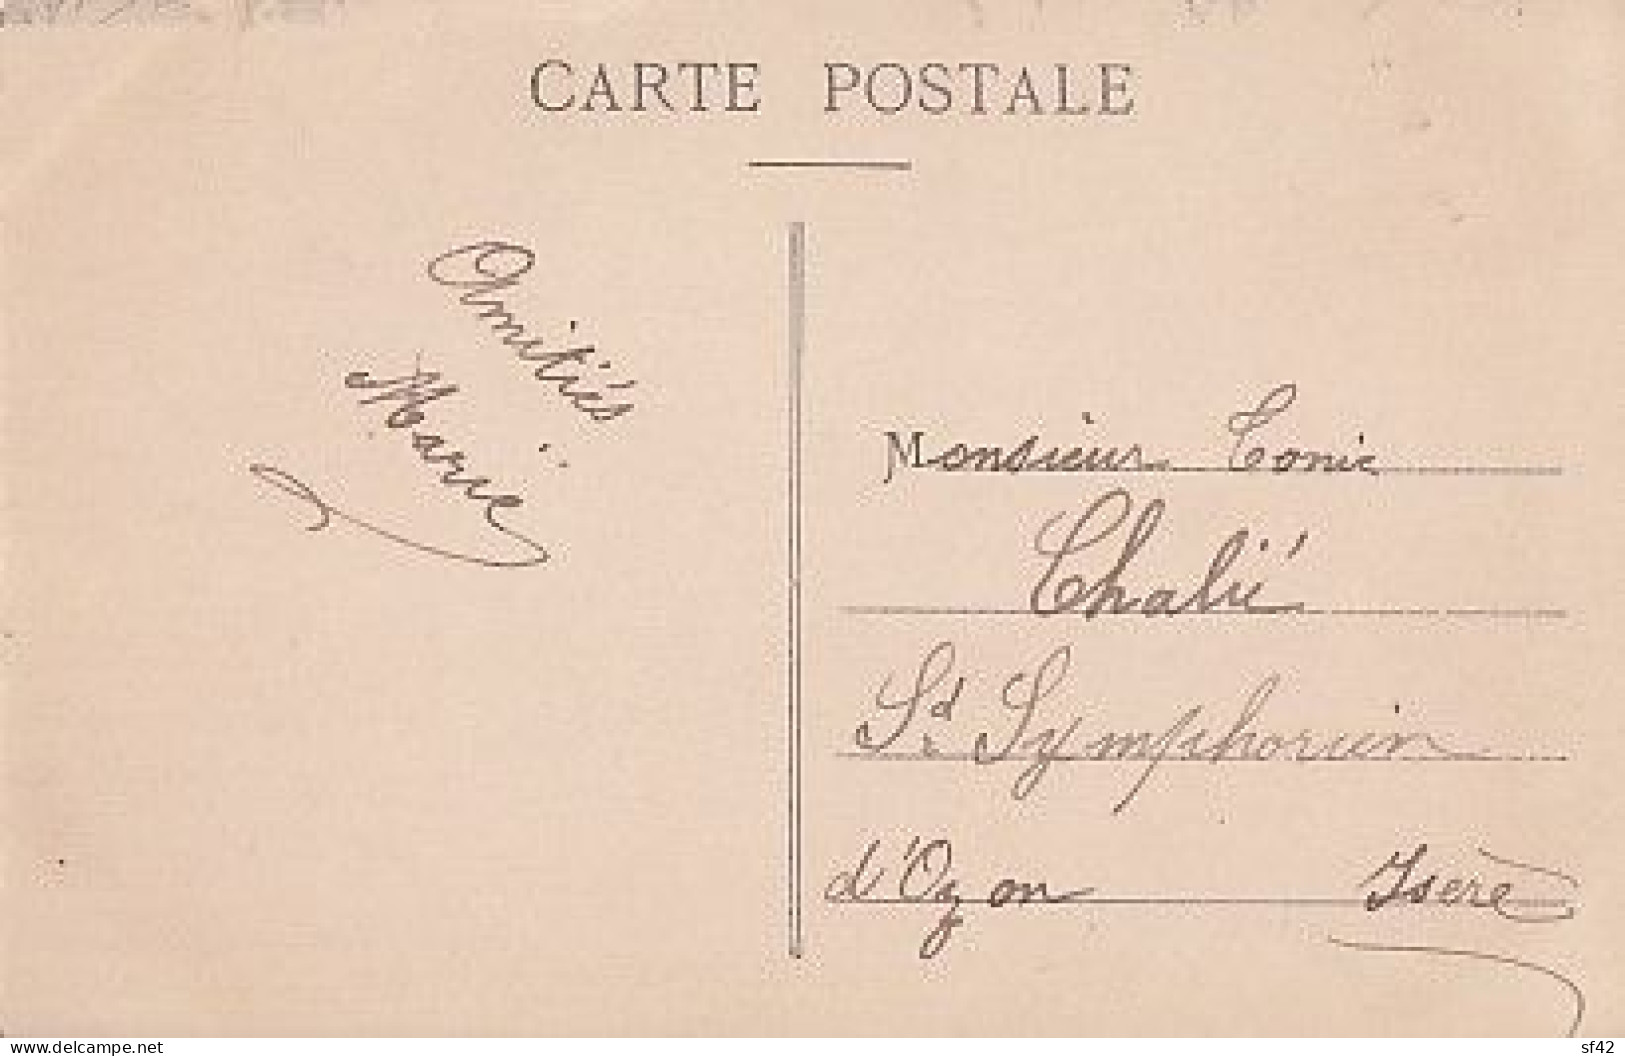 CARTE POSTALE
Amitiés
Marie
Monsieur Tonie
Chalié
St Symphorien
d'Ozon Isère
delcampe.net
sf42